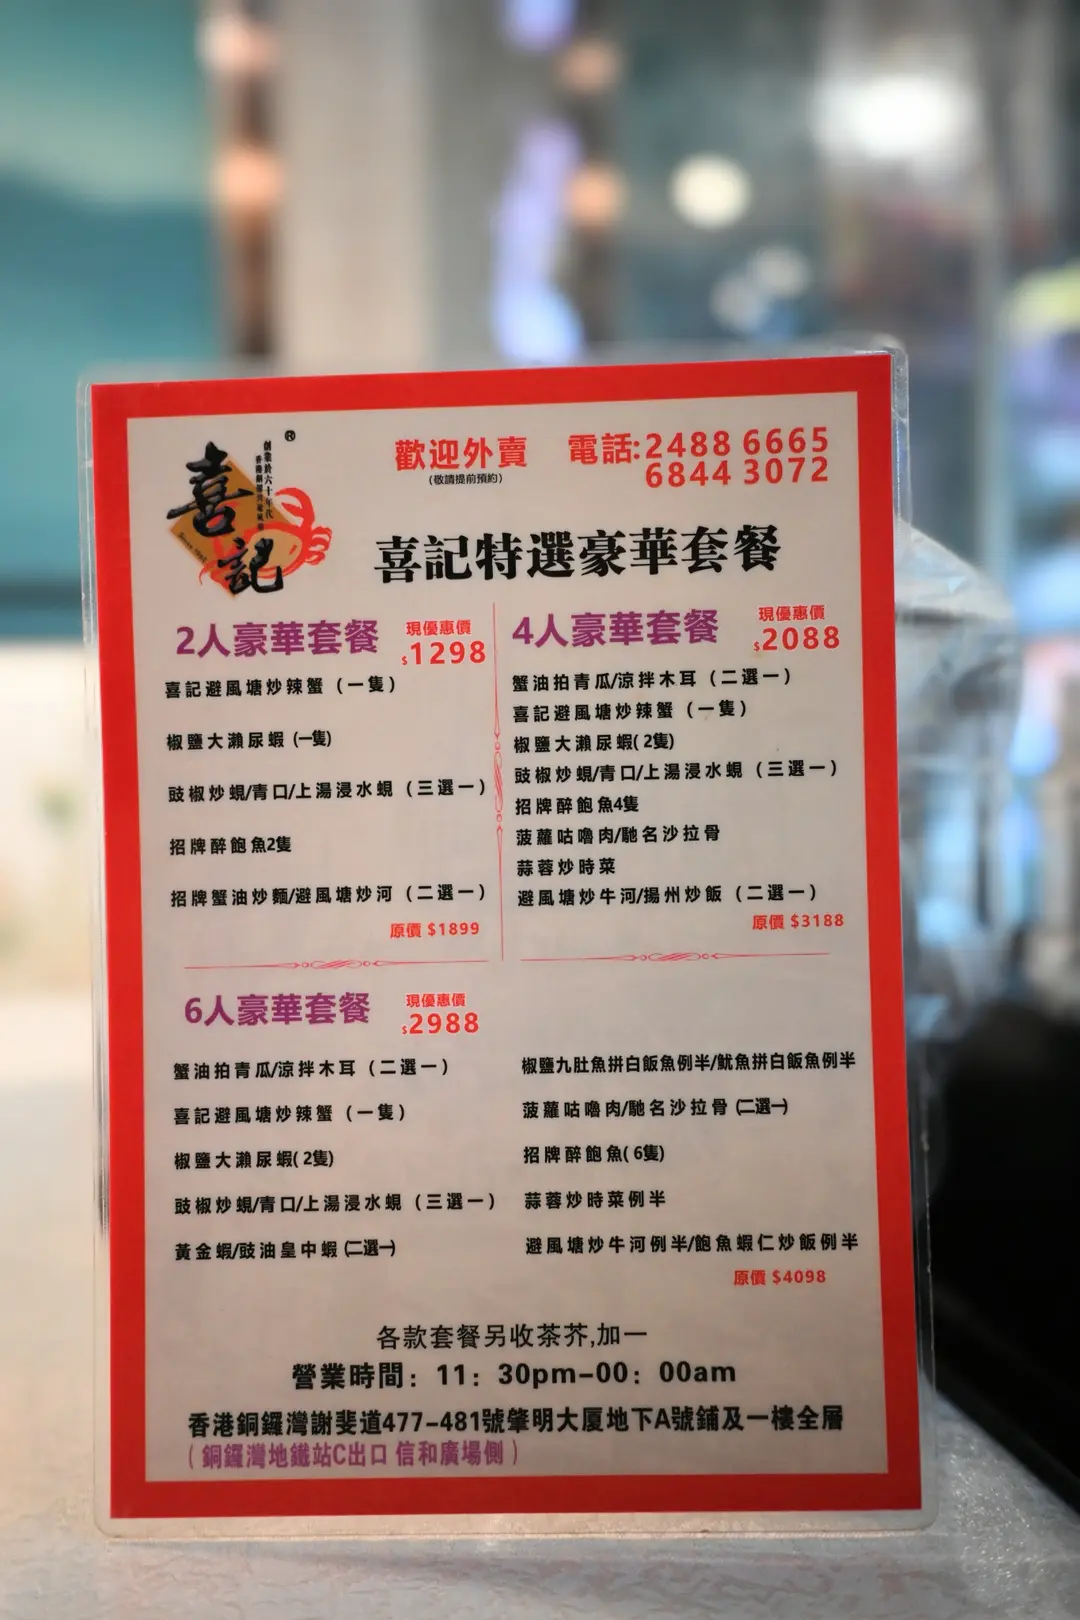 喜記
®
創業於六十年代
歡迎外賣
(敬請提前預約)
電話:2488 6665
6844 3072
喜記特選豪華套餐
2人豪華套餐
現優惠價
$1298
喜記避風塘炒辣蟹（一隻）
椒鹽大瀨尿蝦 (一隻)
豉椒炒蜆/青口/上湯浸水蜆（三選一）
招牌醉鮑魚2隻
招牌蟹油炒麵/避風塘炒河（二選一）
原價 $1899
4人豪華套餐
現優惠價
$2088
蟹油拍青瓜/涼拌木耳（二選一）
喜記避風塘炒辣蟹（一隻）
椒鹽大瀨尿蝦( 2隻)
豉椒炒蜆/青口/上湯浸水蜆（三選一）
招牌醉鮑魚4隻
菠蘿咕嚕肉/馳名沙拉骨
蒜蓉炒時菜
避風塘炒牛河/揚州炒飯（二選一）
原價 $3188
6人豪華套餐
現優惠價
$2988
蟹油拍青瓜/涼拌木耳（二選一）
喜記避風塘炒辣蟹（一隻）
椒鹽大瀨尿蝦( 2隻)
豉椒炒蜆/青口/上湯浸水蜆（三選一）
黃金蝦/豉油皇中蝦 (二選一)
椒鹽九肚魚拼白飯魚例半/魷魚拼白飯魚例半
菠蘿咕嚕肉/馳名沙拉骨 (二選一)
招牌醉鮑魚( 6隻)
蒜蓉炒時菜例半
避風塘炒牛河例半/鮑魚蝦仁炒飯例半
原價 $4098
各款套餐另收茶芥,加一
營業時間：11：30pm-00：00am
香港銅鑼灣謝斐道477-481號肇明大厦地下A號鋪及一樓全層
（銅鑼灣地鐵站C出口 信和廣場側）